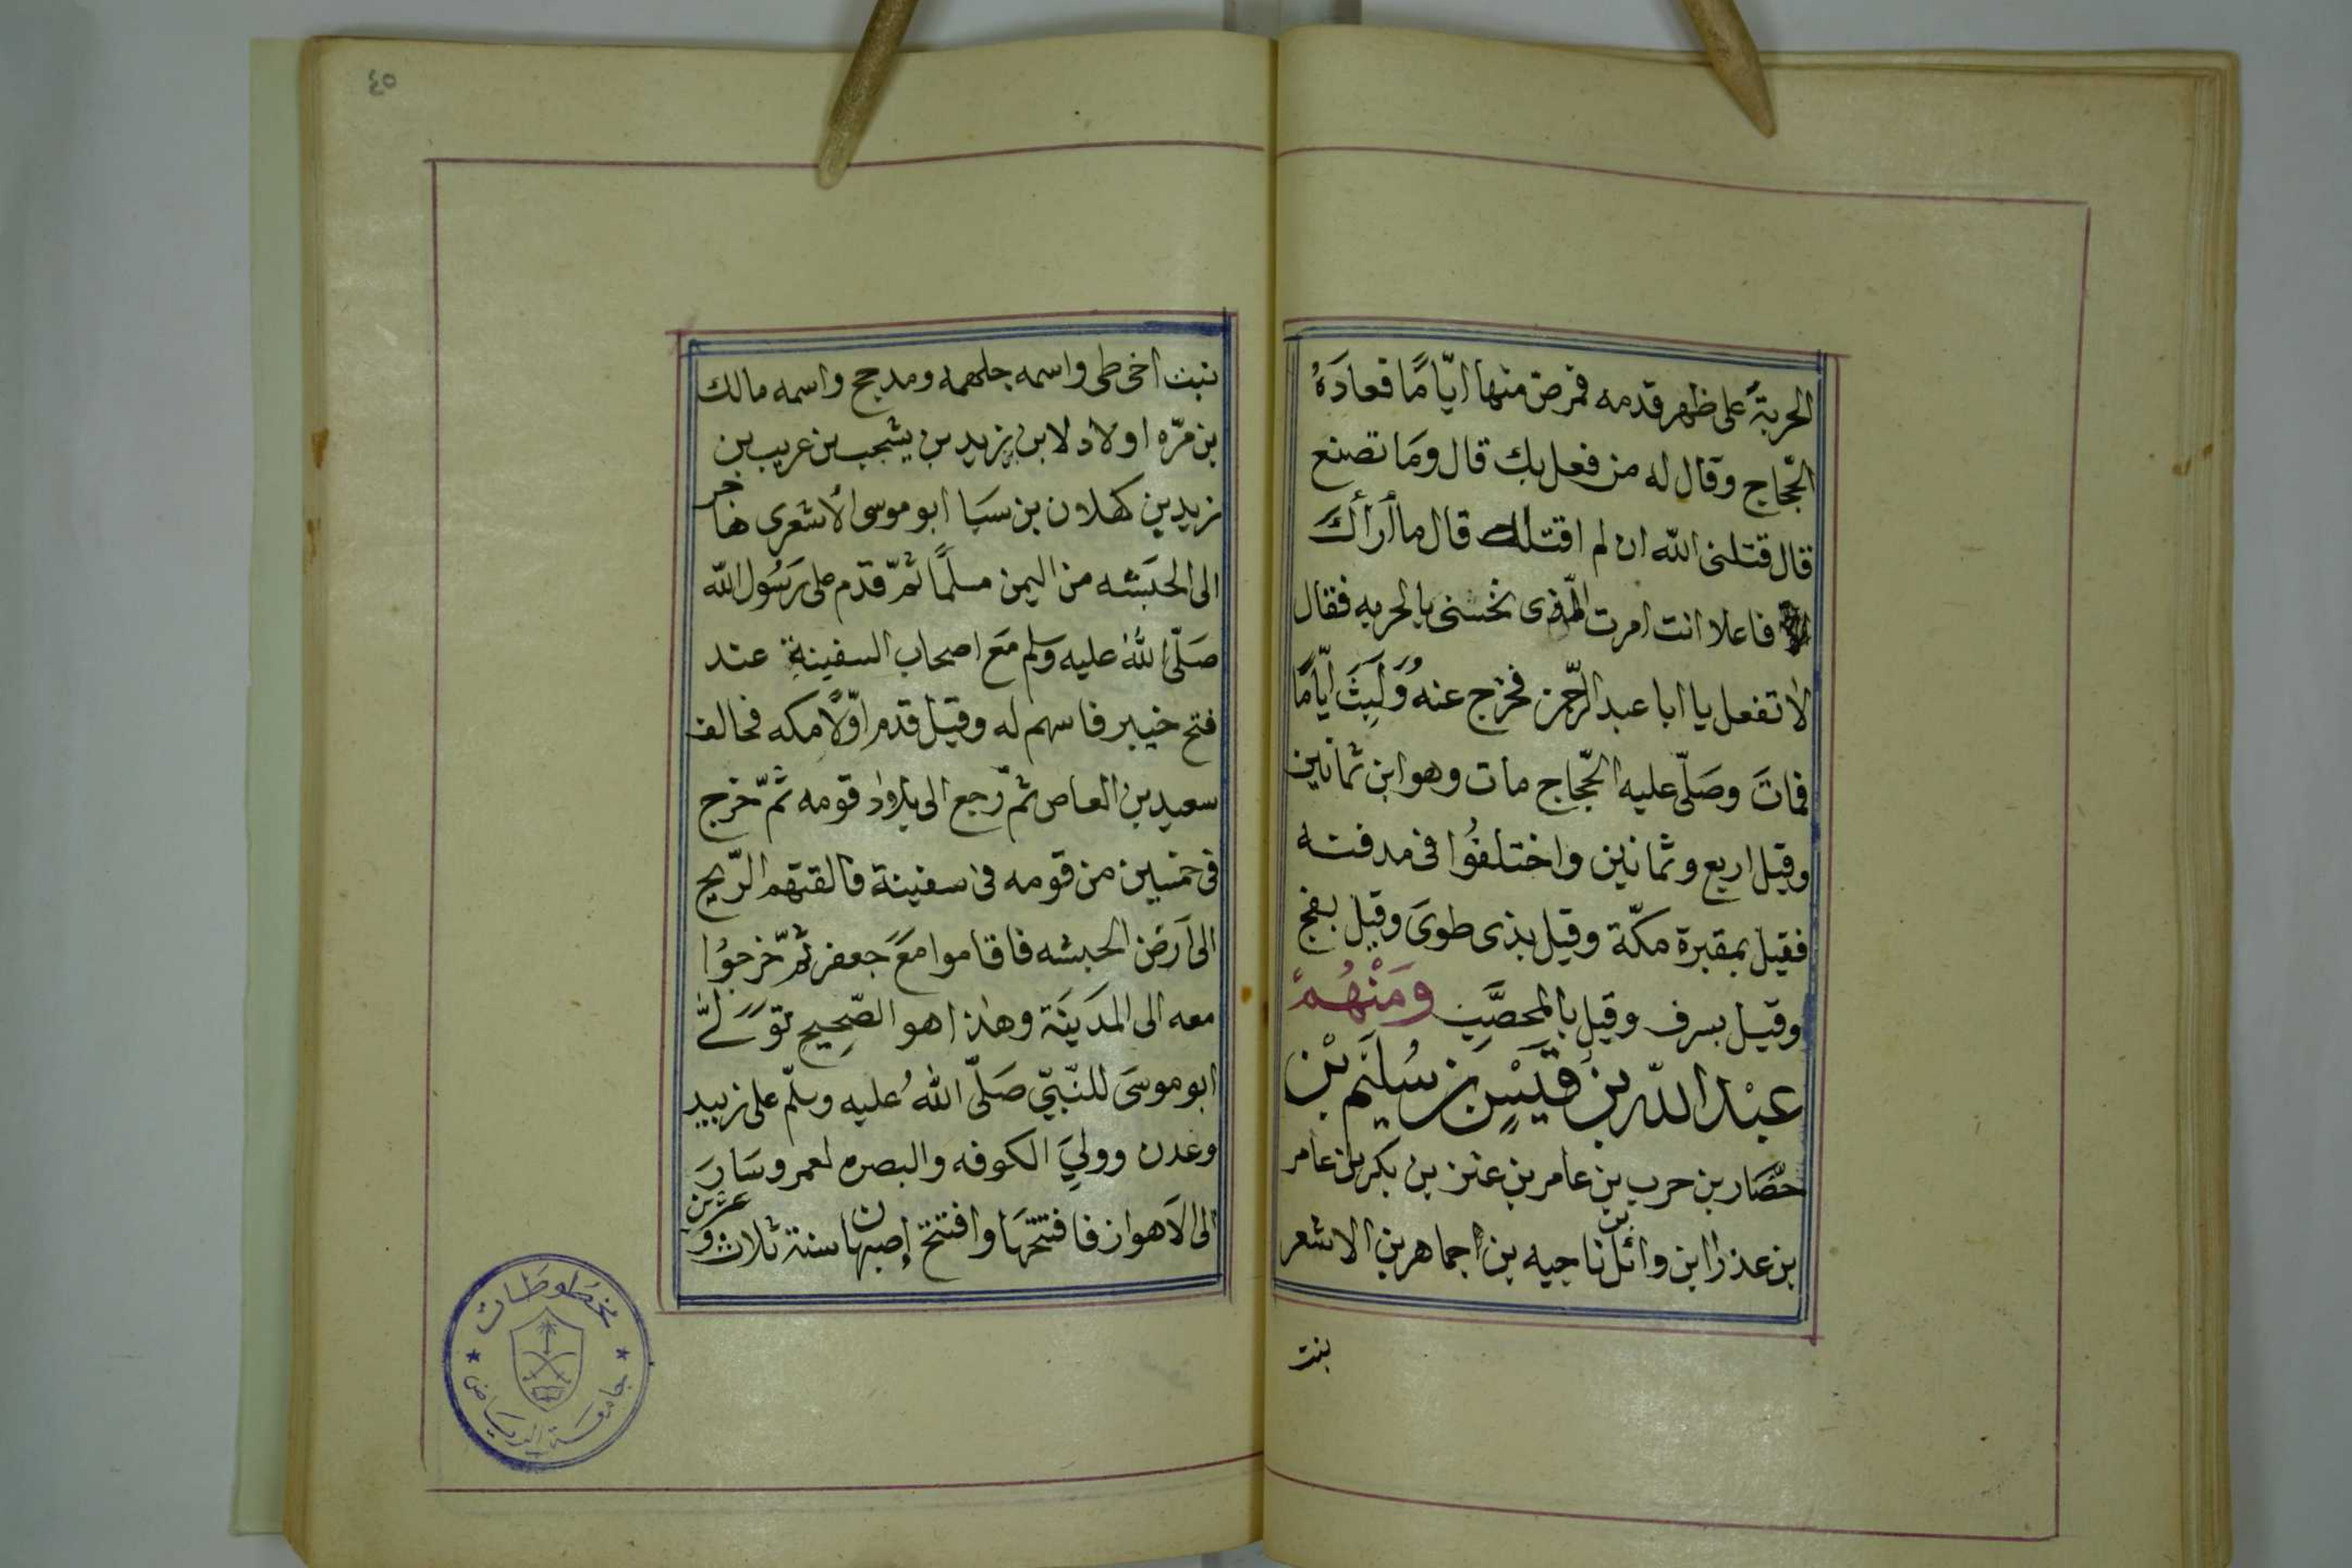 الحربة على ظهر قدمه فمرض منها ايّامًا فعادَهُ
الحّجاج وقال له من فعل بك قال ومَا تصنع
قال قتلنى الله ان لم اقتلك قال ما أراك
فاعلا انت امرت الّذى نخسنى بالحربه فقال
لا تفعل يا ابا عبد الرّحمن فخرج عنه وَلَبِثَ ايّامًا
فماتَ وصَلّى عليه الحّجاج مات وهو ابن ثمانين
وقيل اربع وثمانين واختلفُوا فى مدفنه
فقيل بمقبرة مكّة وقيل بذى طوىَ وقيل بفخ
وقيل بسرف وقيل بالمحصَّب ومَنْهُمْ
عبْد الله بن قَيْسٍ بن سُلَيم بْن
حصَّار بن حرب بن عامر بن عنز بن بكر بن عامر
بن عذر ابن وائل بن ناجيه بن اجماهر بن الاشعر
بنت
٤٥
بنت اخى طى واسمه جلهمه ومدحج واسمه مالك
بن مرّه اولاد لابن يزيد بن يشجب بن عريب بن
زيد بن كهلان بن سَبَا ابو موسى الأشعرى هاجر
الى الحبَشه من اليمن مسلمًا ثمّ قدم على رَسُول الله
صَلّى اللهُ عليه وسلم مَع اصحاب السفينةِ عند
فتح خيبر فاسهم له وقيل قدم اوّلاً مكه فحالف
سعيد بن العاص ثمّ رجع الى بلاد قومه ثمّ خرج
فى خمسين من قومه فى سفينة فالقتهم الرّيح
الى اَرض الحبشه فاقاموا مَعَ جَعفر ثمّ خرجوُا
معه الى المَدَينَة وهذا هو الصّحِيح توَلَّى
ابو موسَى للنّبىّ صَلّى اللهُ عليه وسلّم على زبيد
وعدن ووليَ الكوفه والبصره لعمر وسَارَ
الى الاَهواز فافتتحهَا وافتتح إصبهان سنة ثلاث وعشرين
مخطوطات
جامعة الرياض